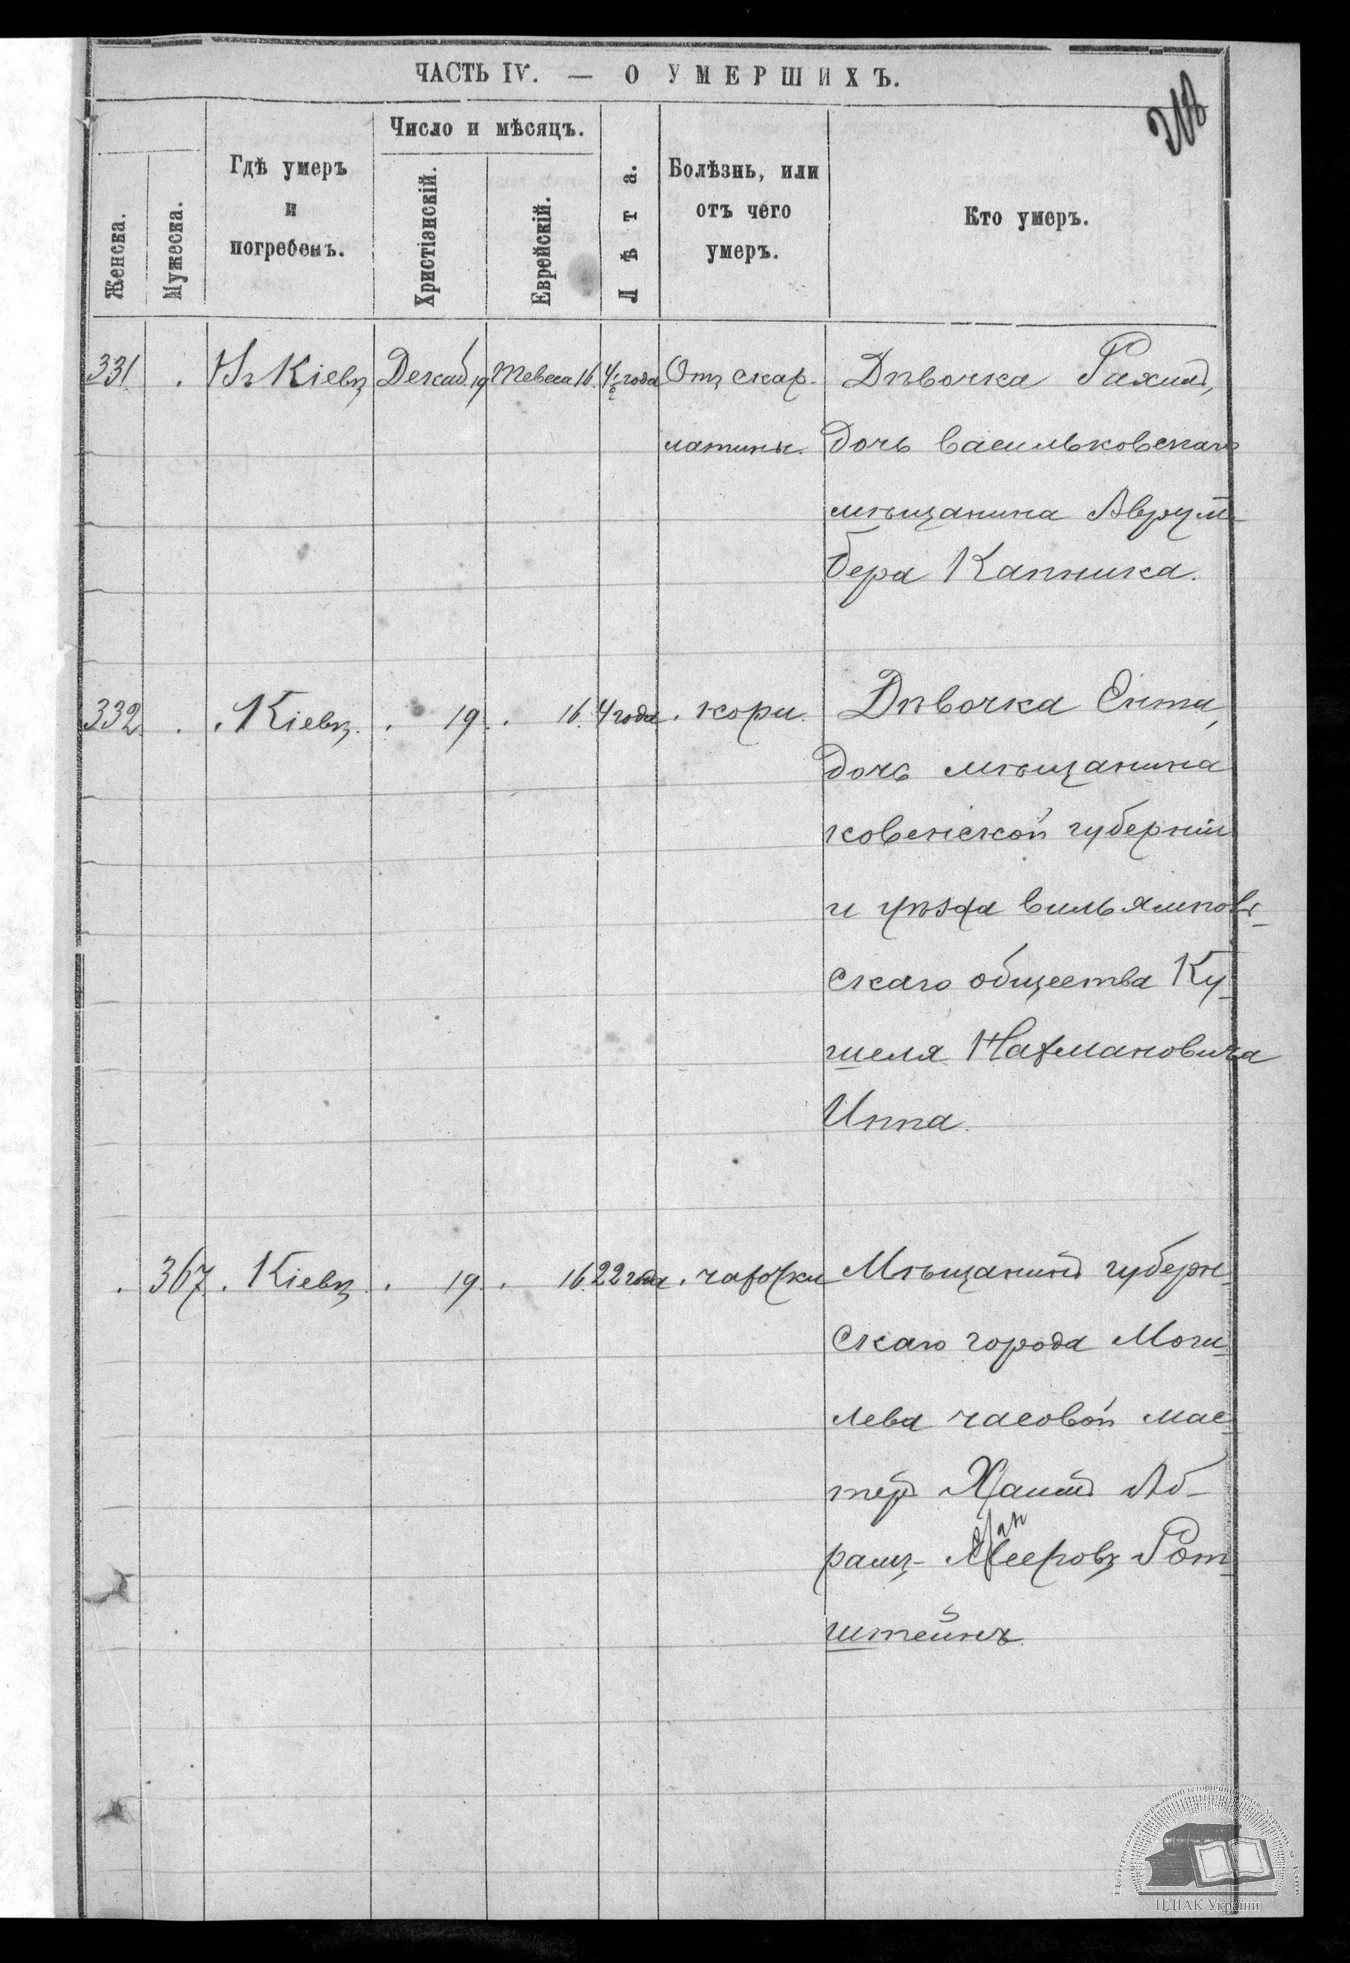 ЧАСТЬ IV. — О УМЕРШИХЪ.
Женска.
Мужеска.
Гдѣ умеръ
и
погребенъ.
Число и мѣсяцъ.
Христіанскій.
Еврейскій.
Лѣта.
Болѣзнь, или
отъ чего
умеръ.
Кто умеръ.
331. Въ Кіевѣ Декаб. 19 Тевеса 16. 4 1/2 года Отъ скар- Дѣвочка Рахиль,
латины. дочь Васильковскаго
мѣщанина Аврум-
бера Капника.
332. Кіевѣ. 19. 16. 4 года кори. Дѣвочка Ента,
дочь мѣщанина
Ковенской губерніи
и уѣзда Вильямпов-
скаго общества Ку-
шеля Нахмановича
Иппа.
367. Кіевѣ. 19. 16. 22 года чахотки Мѣщанинъ губерн-
скаго города Моги-
лева часовой мас-
теръ Хаимъ Аб-
рамъ- Мееровъ Рот-
штейнъ.
ЦДІАК України